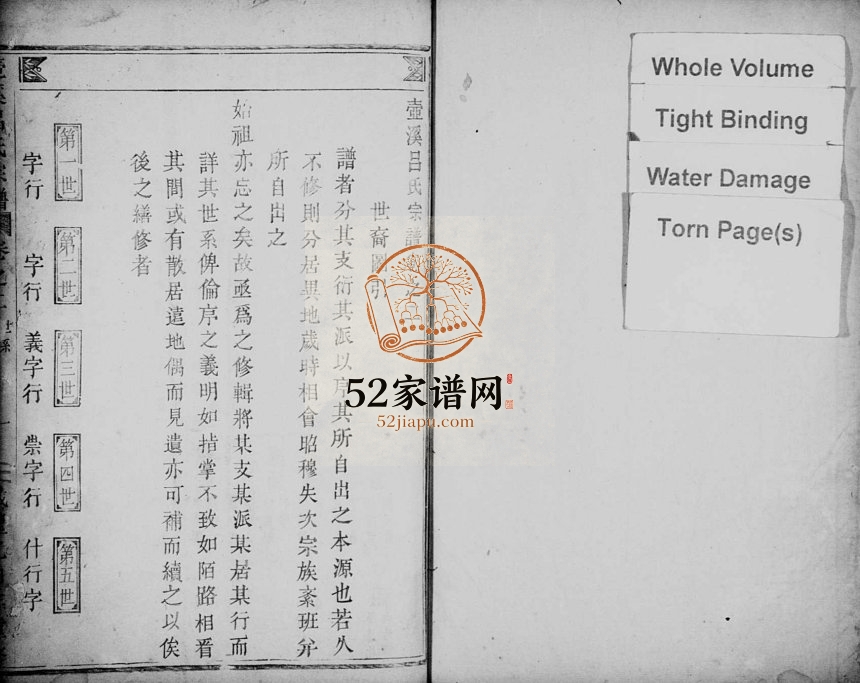 壺溪呂氏宗譜
世裔圖引
譜者分其支衍其派以序其所自出之本源也若久
不修則分居異地歲時相會昭穆失次宗族紊班幷
所自出之
始祖亦忘之矣故亟爲之修輯將某支某派某居某行而
詳其世系俾倫序之義明如指掌不致如陌路相看
其間或有散居遠地偶而見遺亦可補而續之以俟
後之繕修者
第一世
字行
第二世
字行
第三世
義字行
第四世
崇字行
第五世
什行字
世系
Whole Volume
Tight Binding
Water Damage
Torn Page(s)
52家谱网
52jiapu.com